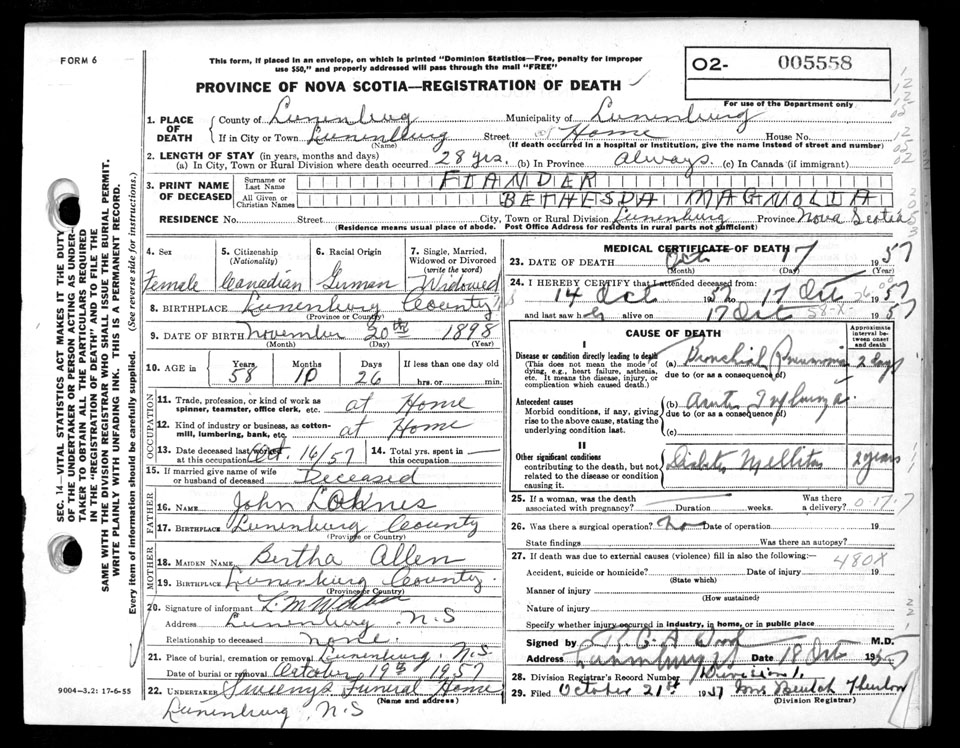 FORM 6
This form, if placed in an envelope, on which is printed "Dominion Statistics—Free, penalty for improper
use $50," and properly addressed will pass through the mail "FREE"
O2- 005558
PROVINCE OF NOVA SCOTIA—REGISTRATION OF DEATH
For use of the Department only
1. PLACE OF DEATH County of Lunenburg Municipality of Lunenburg
If in City or Town Lunenburg Street at Home House No.
(Name) (If death occurred in a hospital or institution, give the name instead of street and number)
2. LENGTH OF STAY (in years, months and days)
(a) In City, Town or Rural Division where death occurred 28 yrs. (b) In Province always. (c) In Canada (if immigrant)
3. PRINT NAME OF DECEASED Surname or Last Name FIANDER
All Given or Christian Names BETHESDA MAGNOLIA
RESIDENCE No. Street City, Town or Rural Division Lunenburg Province Nova Scotia
(Residence means usual place of abode. Post Office Address for residents in rural parts not sufficient)
4. Sex Female
5. Citizenship (Nationality) Canadian
6. Racial Origin German
7. Single, Married, Widowed or Divorced (write the word) Widowed
8. BIRTHPLACE Lunenburg County
(Province or Country)
9. DATE OF BIRTH November 20th 1898
(Month) (Day) (Year)
10. AGE in Years 58 Months 10 Days 26 If less than one day old
hrs. or min.
OCCUPATION
11. Trade, profession, or kind of work as spinner, teamster, office clerk, etc. at Home
12. Kind of industry or business, as cotton-mill, lumbering, bank, etc. at Home
13. Date deceased last worked at this occupation Oct. 16/57 14. Total yrs. spent in this occupation
15. If married give name of wife or husband of deceased Deceased
FATHER
16. NAME John
17. BIRTHPLACE Lunenburg County
(Province or Country)
MOTHER
18. MAIDEN NAME Bertha Allen
19. BIRTHPLACE Lunenburg County.
(Province or Country)
20. Signature of informant L. M.
Address Lunenburg. N.S
Relationship to deceased none.
21. Place of burial, cremation or removal Lunenburg. N.S.
Date of burial or removal October 19th 1957
22. UNDERTAKER Sweeny's Funeral Home
(Name and address)
Lunenburg, N.S
MEDICAL CERTIFICATE OF DEATH
23. DATE OF DEATH Oct 17 1957
(Month) (Day) (Year)
24. I HEREBY CERTIFY that I attended deceased from:
14 Oct 1957 to 17 Oct 1957
and last saw h alive on 17 Oct 1957
58-X-
CAUSE OF DEATH
Approximate interval between onset and death
I
Disease or condition directly leading to death
(This does not mean the mode of dying, e.g., heart failure, asthenia, etc. It means the disease, injury, or complication which caused death.)
(a) Bronchial Pneumonia 2 days
due to (or as a consequence of)
Antecedent causes
Morbid conditions, if any, giving rise to the above cause, stating the underlying condition last.
(b)
due to (or as a consequence of)
(c)
II
Other significant conditions
contributing to the death, but not related to the disease or condition causing it.
Diabetes Mellitus 2 years
25. If a woman, was the death associated with pregnancy? Duration weeks. Was there a delivery? 017.7
26. Was there a surgical operation? no Date of operation 19
State findings Was there an autopsy?
27. If death was due to external causes (violence) fill in also the following:
480X
Accident, suicide or homicide? Date of injury 19
(State which)
Manner of injury
(How sustained)
Nature of injury
Specify whether injury occurred in industry, in home, or in public place
Signed by R. G. A. Wood M.D.
Address Lunenburg Date 18 Oct 1957
28. Division Registrar's Record Number Division 1.
29. Filed October 21st 1957 Mrs Beulah
(Division Registrar)
SEC. 14—VITAL STATISTICS ACT MAKES IT THE DUTY
OF THE UNDERTAKER OR PERSON ACTING AS UNDERTAKER TO OBTAIN ALL THE PARTICULARS REQUIRED
IN THE "REGISTRATION OF DEATH" AND TO FILE THE
SAME WITH THE DIVISION REGISTRAR WHO SHALL ISSUE THE BURIAL PERMIT.
WRITE PLAINLY WITH UNFADING INK. THIS IS A PERMANENT RECORD.
Every item of information should be carefully supplied. (See reverse side for instructions.)
9004-3.2: 17-6-55